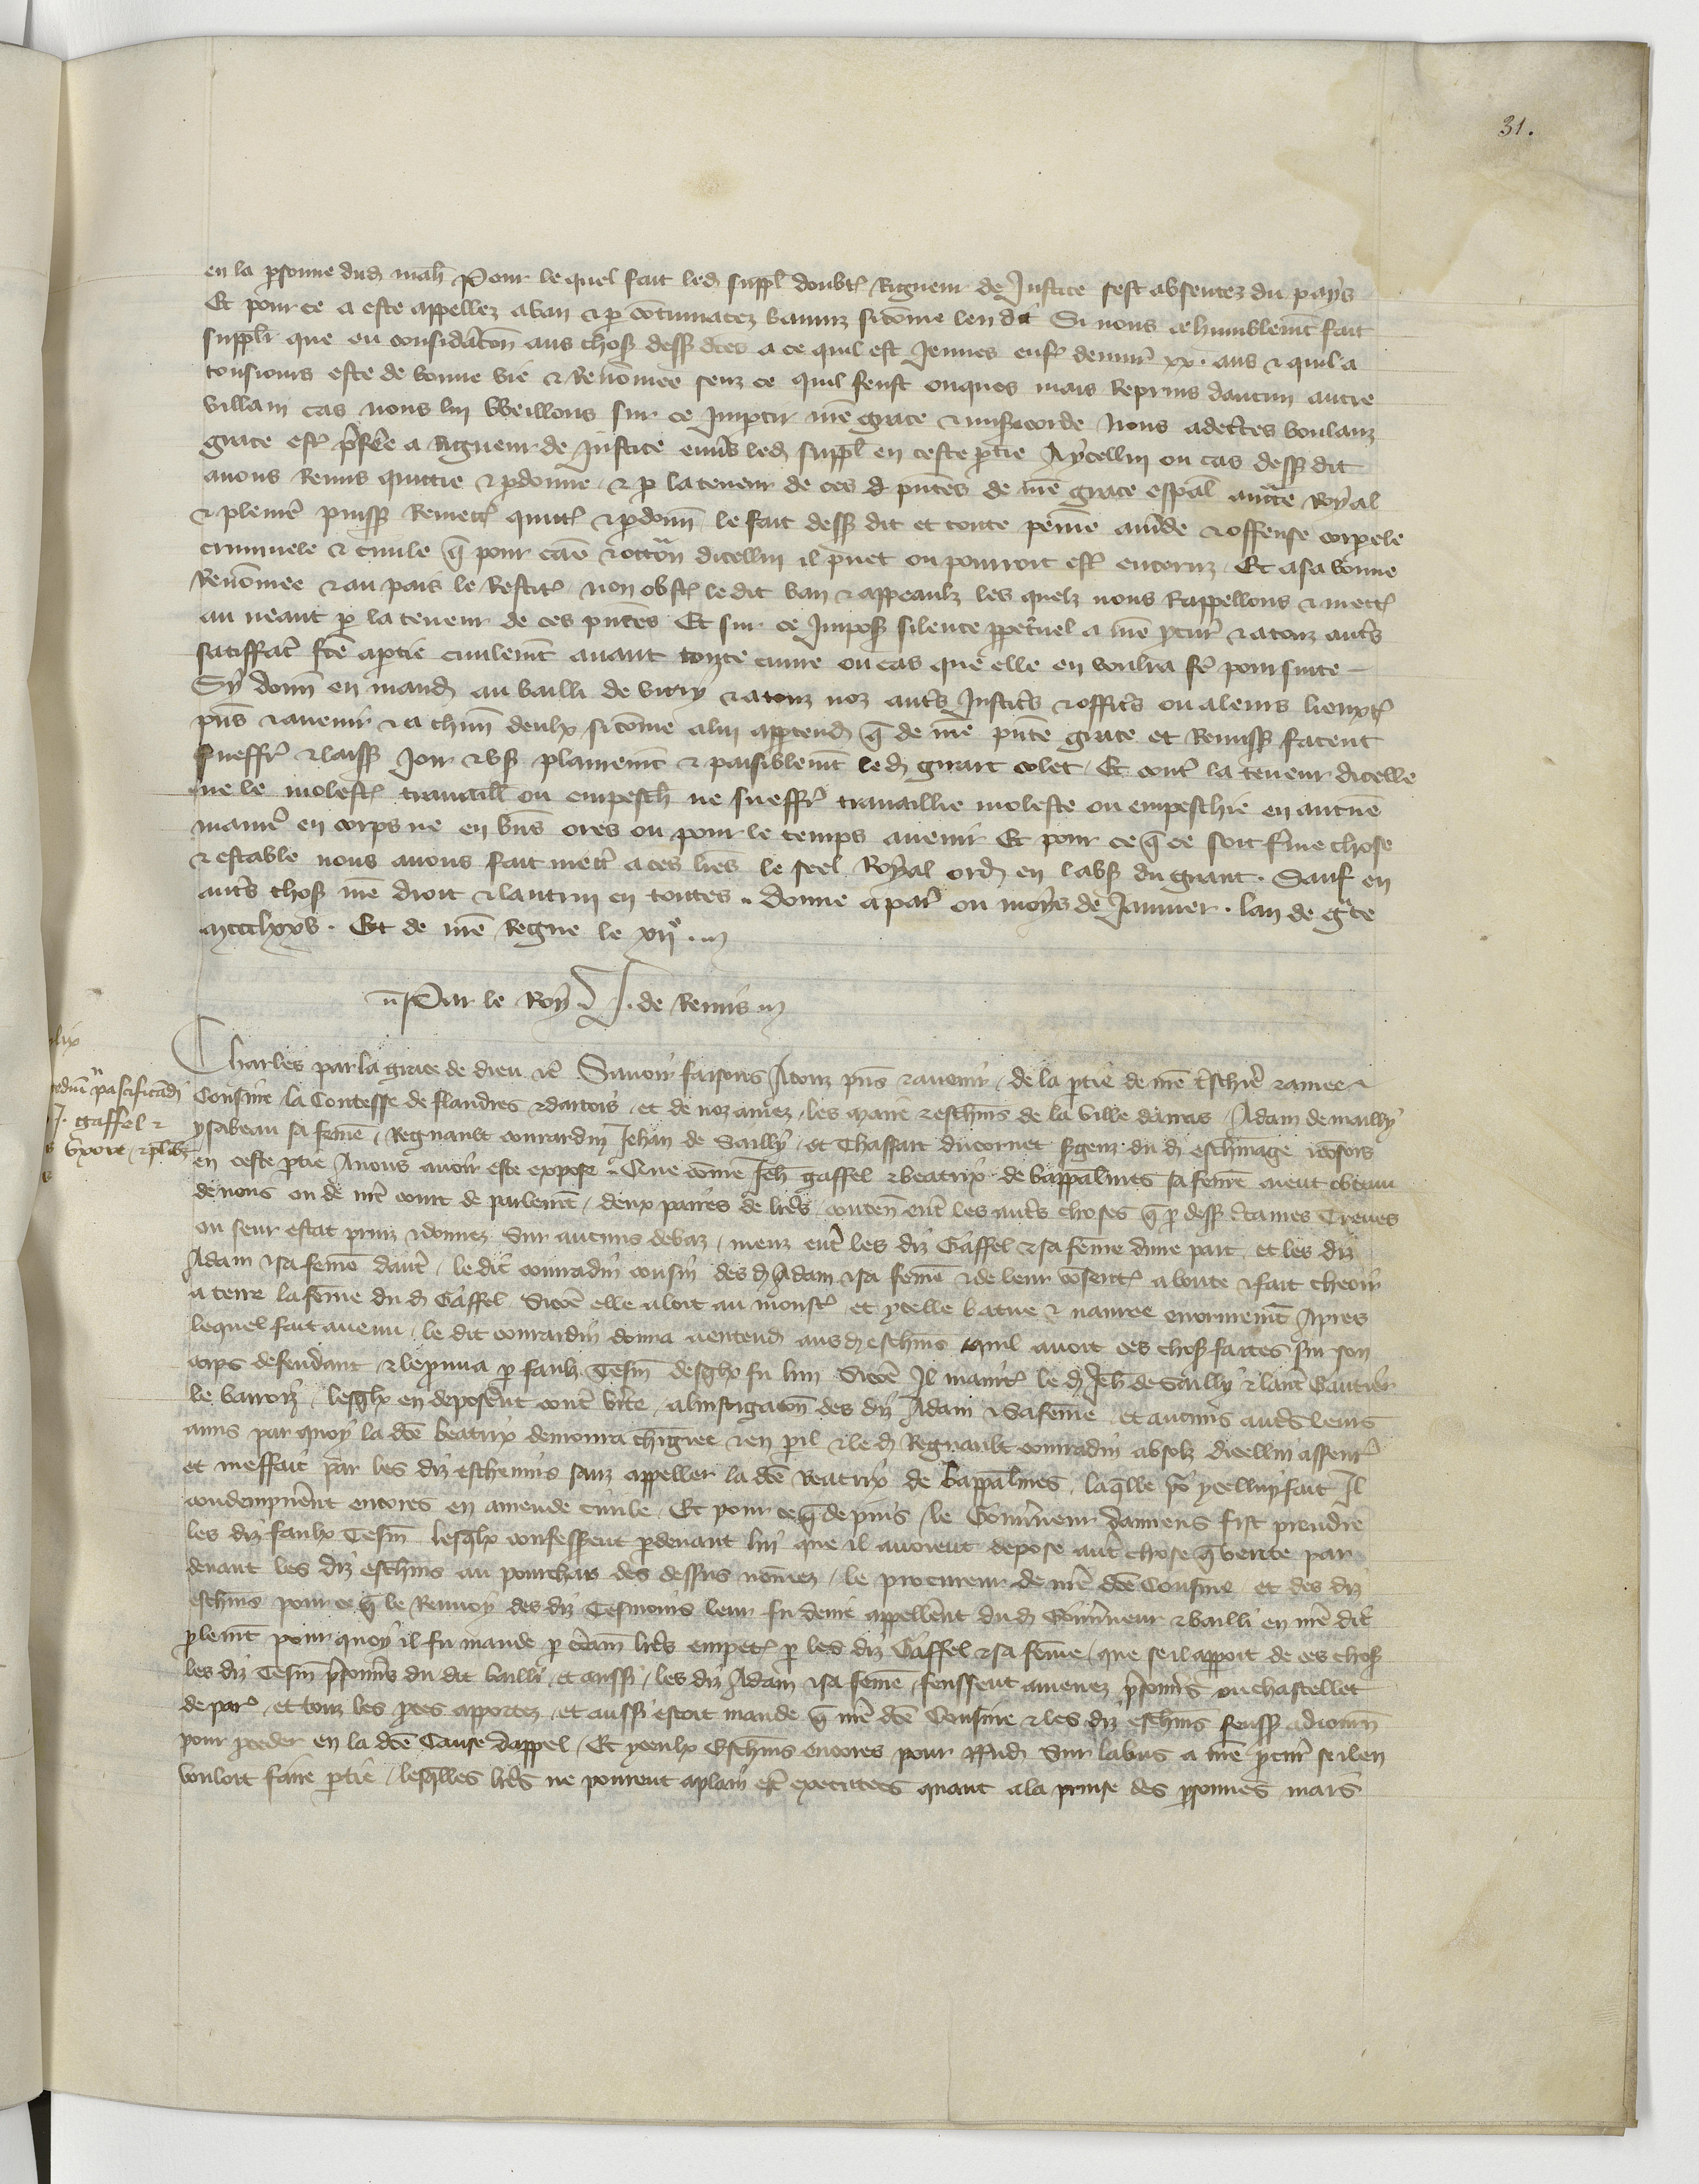 31.
en la psonne dud mah Pour lequel fait led suppl doubt Rigueur de Justice sest absentez du pays
Et pour ce a este appellez a ban & p contumacez baniz si come len dit Si nous a humblemt fait
supplr que eu considacon aus chos dess dces a ce quil est Jeunes enf denuir xx. ans & quil a
tousiours este de bonne vie & Renomee senz ce quil feust onques mais Reprins daucun autre
villain cas nous lui Weillons sur ce Impartir nre grace & misicorde Nous adectes voulanz
grace est pferee a Rigueur de Justice envs led suppl en ceste ptie A ycellui ou cas dess dit
avons Remis quictie & pdonne & p la teneur de ces pntes de nre grace espal aucte Royal
& plenie puiss Remett quitt & pdonn le fait dess dit et toute peine amde & offense corpele
criminele & civile q pour cae & occon dicellui il puet ou pourroit est encoruz Et a sa bonne
Renomee & au pais le Restit non obst le dit ban & appeaulx les quelz nous Rappellons & mett
au neant p la teneur de ces pntes Et sur ce Impos silence ppetuel a nre pcur & a touz auts
satiffac fce a ptie civilemt avant toute euvre ou cas que elle en voulra fe poursuite
Sy donn en mand au bailli de vitry & a touz noz auts Justics & offics ou a leurs lieuxt
pns & avenir & a chun deulx si come a lui apptend q de nre pnte grace et Remiss facent
sueffr & laiss Joir & us plainemt & paisiblemt led girart colet Et cont la teneur dicelle
ne le molest travaill ou empesch ne sueffr travaillie moleste ou empeschie en aucune
manie en corps ne en bns ores ou pour le temps avenir Et pour ce q ce soit ferme chose
& estable nous avons fait mett a ces lres le seel Royal ord en labs du grant. Sauf en
auts chos nre droit & lautrui en toutes. donne a par ou moys de Janvier. lan de gce
mccclxxv. Et de nre Regne le xiie.
Par le Roy. J. de Remis
Charles par la grace de dieu &c Savoir faisons A touz pns & avenir de la ptie de nre tschie & amee
Cousine la Contesse de flandres & dartois et de noz amez les maire & eschns de la ville darras Adam de mailly
ysabeau sa feme Regnault conrardin Jehan de Sailly et Chaffart ducornet sgenz du d eschvinage & cosors
en ceste ptie A nous avoir este expose Que come Jeh gaffel & beatrix de bappalmes sa feme aient obtenu
de nous ou de nre court de parlemt deux paires de lres conten ent les auts choses q p dess ctaines Treves
ou seur estat prins & donnez Sur aucuns debaz meuz ent les diz Gaffel & sa feme dune part et les diz
Adam & sa feme daut le dit conradin cousin des d Adam & sa feme & de leur cosent a boute & fait cheoir
a terre la feme du d Gaffel Sicoe elle aloit au monst et ycelle batue & navree enormemt Apres
lequel fait avenu le dit conrardin donna a entend aus d eschns quil avoit ces chos faittes sur son
corps defendant & le prouva p faulx Tesm desqlx fu lun Sicoe Il maint le d Jeh de Sailly & laut Gautier
le barroiz lesqlx en deposernt cont vite a linstigacon des diz Adam & Sa feme et aucuns auts leurs
amis par quoy la dce beatrix demoura chargiee & en pil & le d Regnault conradin absolz dicellui assent
et meffait par les diz eschevins sanz appeller la dce Beatrix de bappalmes laqlle po ycelluy fait Il
condempnernt encores en amende civile Et pour ce q depuis le Gouvneur damiens fist prendre
les diz faulx Tesm lesqlx confesserent pdevant lui que il avoient depose aut chose q verite par
devant les diz eschns au pourchas des dessus nomez le procureur de nre dce Cousine et des diz
eschns pour ce q le Renvoy des diz Tesmoins leur fu denie appellernt dud Gouvneur & bailli en nre dit
plemt pour quoy il fu mande p ctain lres empet p les diz Gaffel & sa feme que se il appoit de ces chos
les diz Tesm pisonns du dit bailli et aussi les diz Adam & sa feme feussent amenez pisonns ou chastellet
de par et touz les pces apportez et aussi estoit mande q nre dce Cousine & les diz eschns feuss adiourn
pour pceder en la dce Cause dappel Et yceulx Eschns encores pour Rnd Sur labus a nre pcur se il en
vouloit faire ptie lesqlles lres ne pourent a plain est executees quant a la prinse des psonnes mais
pascificandi
J. gaffel &
uxore & plibz